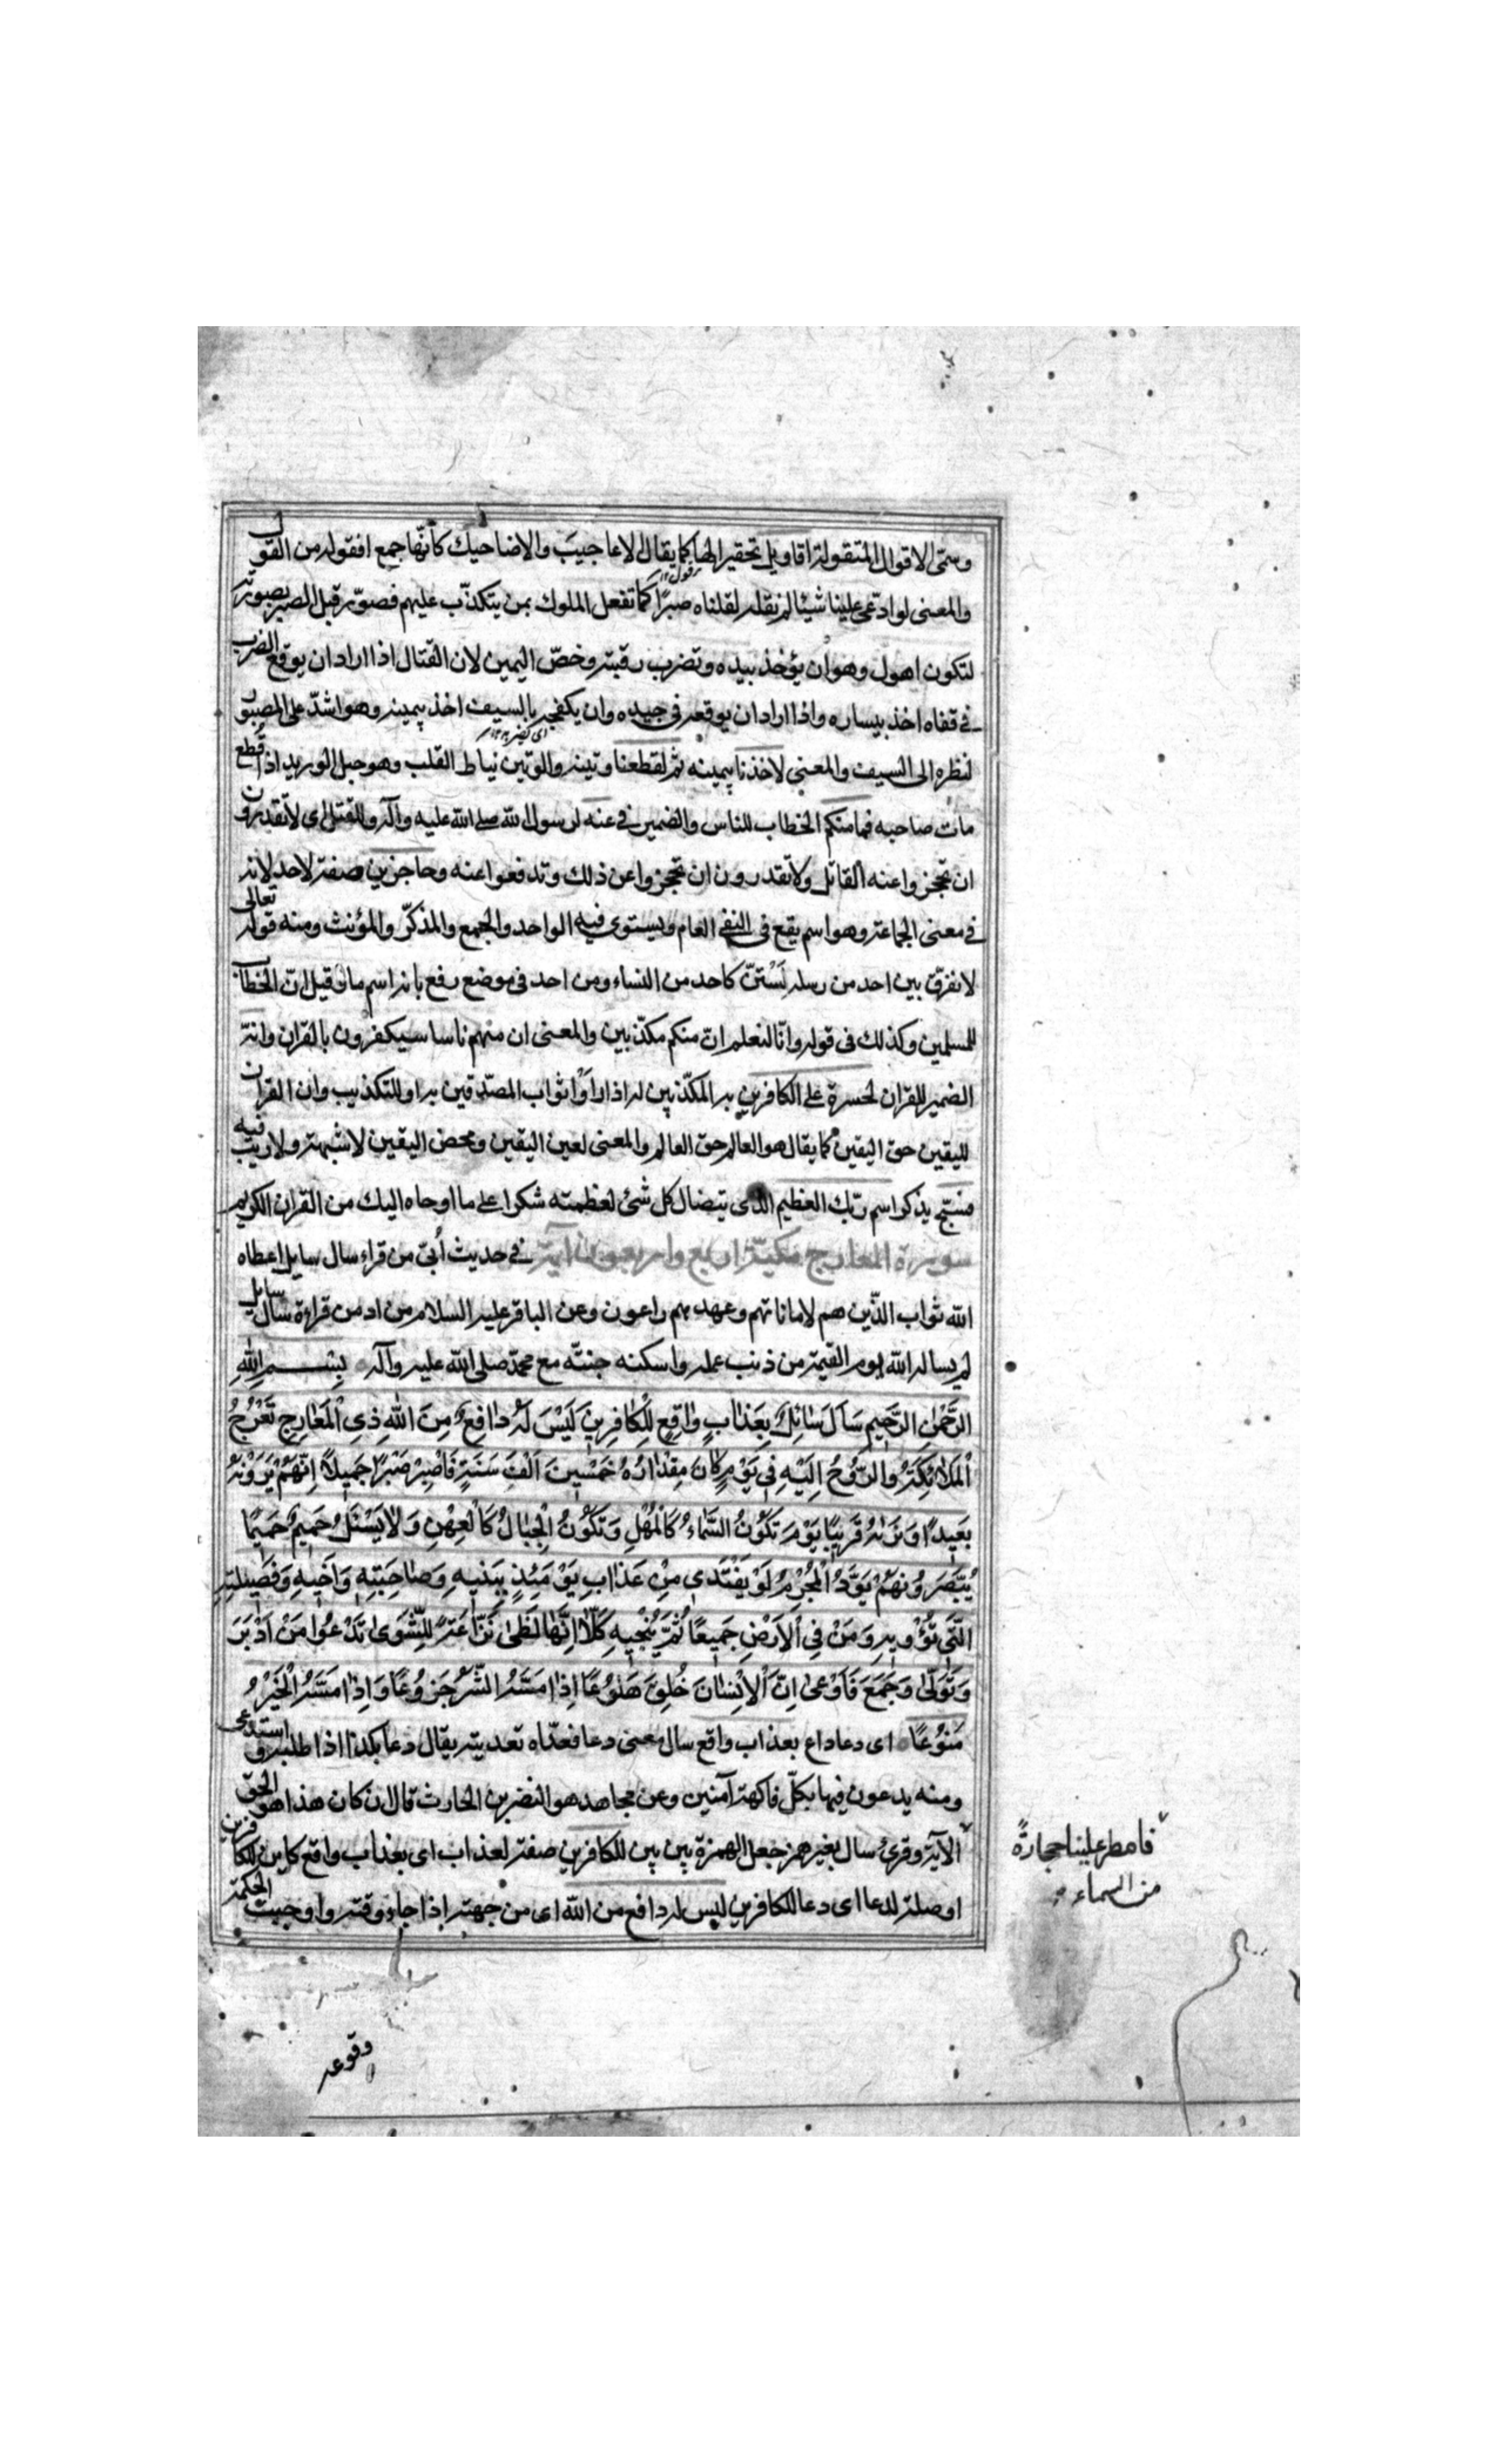 وسمّى الاقوال المتقولة اقاويل تحقيرا لها كما يقال الاعاجيب والاضاحيك كأنّها جمع افقوله من القول
والمعنى لو ادّعى علينا شيئا لم نقله لقتلناه صبرًا كما تفعل الملوك بمن يتكذّب عليهم فصوّر قبل الصبر بصورته
لتكون اهول وهو ان يؤخذ بيده وتضرب رقبته وخصّ اليمين لان القتال اذا اراد ان يوقع الضرب
فى قفاه اخذ بيساره واذا اراد ان يوقعه فى جيده وان يكفحه بالسيف اخذ بيمينه وهو اشدّ على المصبور
لنظره الى السيف والمعنى لاخذنا بيمينه ثم لقطعنا وتينه والوتين نياط القلب وهو حبل الوريد اذا قطع
مات صاحبه فما منكم الخطاب للناس والضمير فى عنه لرسول الله صلى الله عليه وآله وللقتل اى لا تقدرون
ان تحجزوا عنه القاتل ولا تقدرون ان تحجزوا عن ذلك وتدفعوا عنه وحاجزين صفة لاحد لانه
فى معنى الجماعة وهو اسم يقع فى النفى العام ويستوى فيه الواحد والجمع والمذكّر والمؤنث ومنه قوله تعالى
لا نفرّق بين احد من رسله لَسْتنّ كاحد من النساء ومن احد فى موضع رفع بانه اسم ما وقيل انّ الخطاب
للمسلمين وكذلك فى قوله وانّا لنعلم انّ منكم مكذّبين والمعنى ان منهم ناسا سيكفرون بالقران وانه
الضمير للقران لحسرة على الكافرين به المكذّبين له اذا راَوْا ثواب المصّدقين به او للتكذيب وان القران
لليقين حق اليقين كما يقال هو العالم حق العالم والمعنى لعين اليقين ومحض اليقين لا شبهة ولا ريب فيه
فسبّح بذكر اسم ربّك العظيم الذى يتضال كل شئ لعظمته شكرا على ما اوحاه اليك من القران الكريم
سورة المعارج مكيّة اربع واربعون آية فى حديث أُبىّ من قراء سال سايل اعطاه
الله ثواب الذّين هم لاماناتهم وعهدهم راعون وعن الباقر عليه السلام من ادمن قراءة سال سايل
لم يساله الله يوم القيمة من ذنب عمله واسكنه جنّته مع محمد صلى الله عليه وآله بِسْــمِ اللهِ
الرَّحْمٰنِ الرَّحيمِ سَأَلَ سَائِلٌ بِعَذابٍ وٰاقِعٍ لِلْكٰافِرينَ لَيْسَ لَهُ دٰافِعٌ مِنَ اللهِ ذِى الْمَعٰارِجِ تَعْرُجُ
الْمَلٰائِكَةُ وَالرُّوحُ اِلَيْهِ فى يَوْمٍ كٰانَ مِقْدٰارُهُ خَمْسينَ اَلْفَ سَنَةٍ فَاصْبِرْ صَبْرًا جَميلًا اِنَّهُمْ يَرَوْنَهُ
بَعيدًا وَنَرٰيهُ قَريبًا يَوْمَ تَكُونُ السَّمٰاءُ كَالْمُهْلِ وَتَكُونُ الْجِبٰالُ كَالْعِهْنِ وَلٰا يَسْئَلُ حَميمٌ حَميمًا
يُبَصَّرُونَهُمْ يَوَدُّ الْمُجْرِمُ لَوْ يَفْتَدى مِنْ عَذٰابِ يَوْمَئِذٍ بِبَنيهِ وَصٰاحِبَتِهِ وَاَخيهِ وَفَصيلَتِهِ
الَّتى تُؤْويهِ وَمَنْ فِى الْاَرْضِ جَميعًا ثُمَّ يُنْجيهِ كَلّٰا اِنَّهٰا لَظٰى نَزّٰاعَةً لِلشَّوٰى تَدْعُوا مَنْ اَدْبَرَ
وَتَوَلّٰى وَجَمَعَ فَاَوْعٰى اِنَّ الْاِنْسٰانَ خُلِقَ هَلُوعًا اِذٰا مَسَّهُ الشَّرُّ جَزُوعًا وَاِذٰا مَسَّهُ الْخَيْرُ
مَنُوعًا اى دعا داع بعذاب واقع سال بمعنى دعا فعدّاه تعديته يقال دعا بكذا اذا طلبه واستدعى
ومنه يدعون فيها بكلّ فاكهة آمنين وعن مجاهد هو النضر بن الحارث قال ان كان هذا هو الحق
الآية وقرئ سال بغير همز جعل الهمزة بين بين للكافرين صفة لعذاب اى بعذاب واقع كاين للكافرين
او صلة لدعا اى دعا للكافرين ليس له دافع من الله اى من جهته اذا جاء وقته واوجبت الحكمة
فامطر علينا حجارةً
من السماء
وقوعه